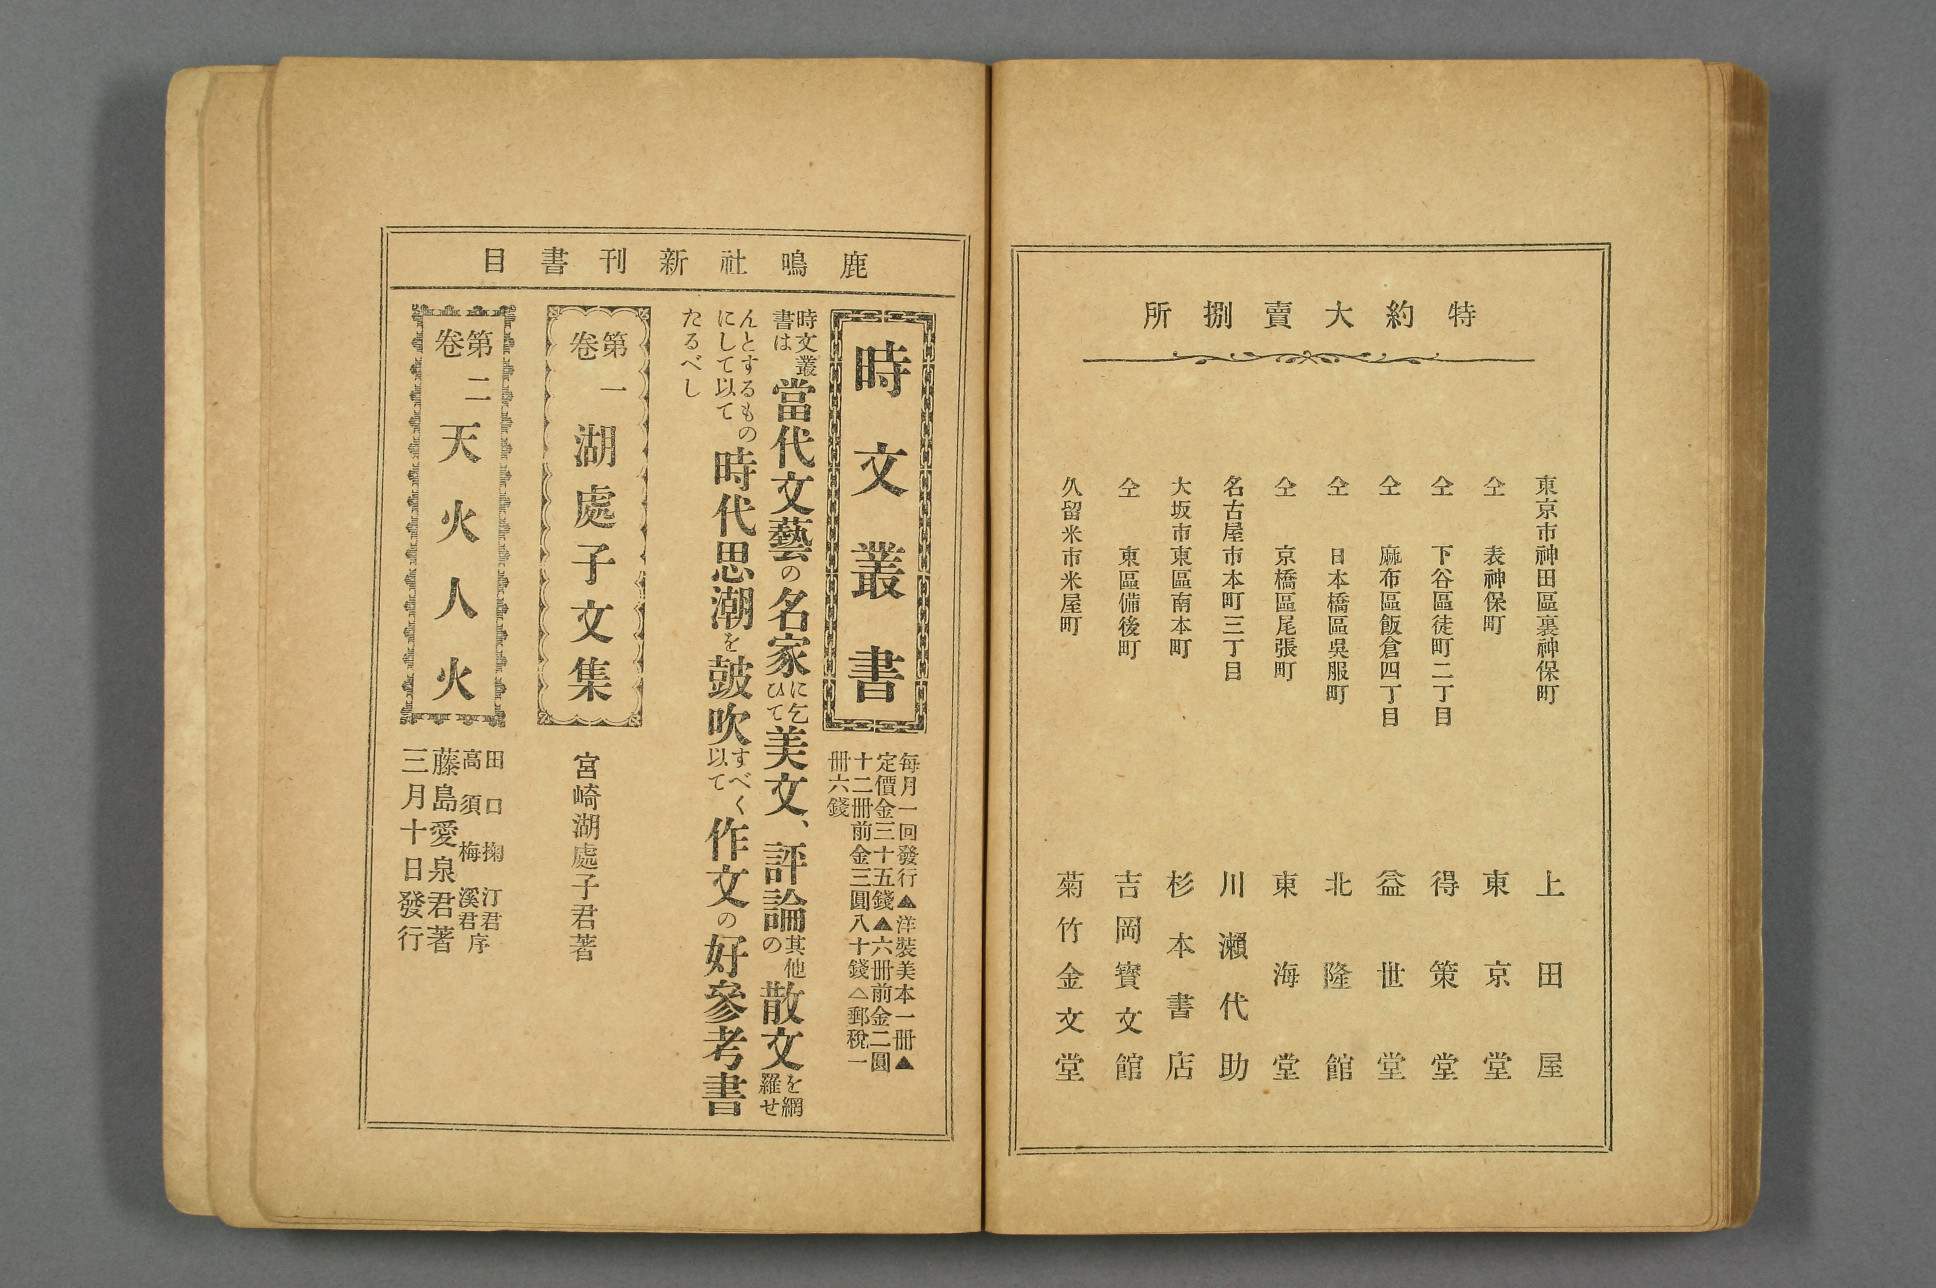 特約大賣捌所
東京市神田區裏神保町 上田屋
仝 表神保町 東京堂
仝 下谷區徒町二丁目 得策堂
仝 麻布區飯倉四丁目 益世堂
仝 日本橋區吳服町 北隆館
仝 京橋區尾張町 東海堂
名古屋市本町三丁目 川瀨代助
大坂市東區南本町 杉本書店
仝 東區備後町 吉岡寳文館
久留米市米屋町 菊竹金文堂
鹿鳴社新刊書目
時文叢書
每月一回發行▲洋裝美本一冊▲
定價金三十五錢▲六冊前金二圓
十二冊前金三圓八十錢△郵稅一
冊六錢
時文叢書は當代文藝の名家に乞ひて美文、評論其他の散文を網羅せ
んとするものにして以て時代思潮を皷吹すべく以て作文の好參考書
たるべし
第一卷 湖處子文集
宮崎湖處子君著
第二卷 天火人火
田口掬汀君
高須梅溪君序
藤島愛泉君著
三月十日發行